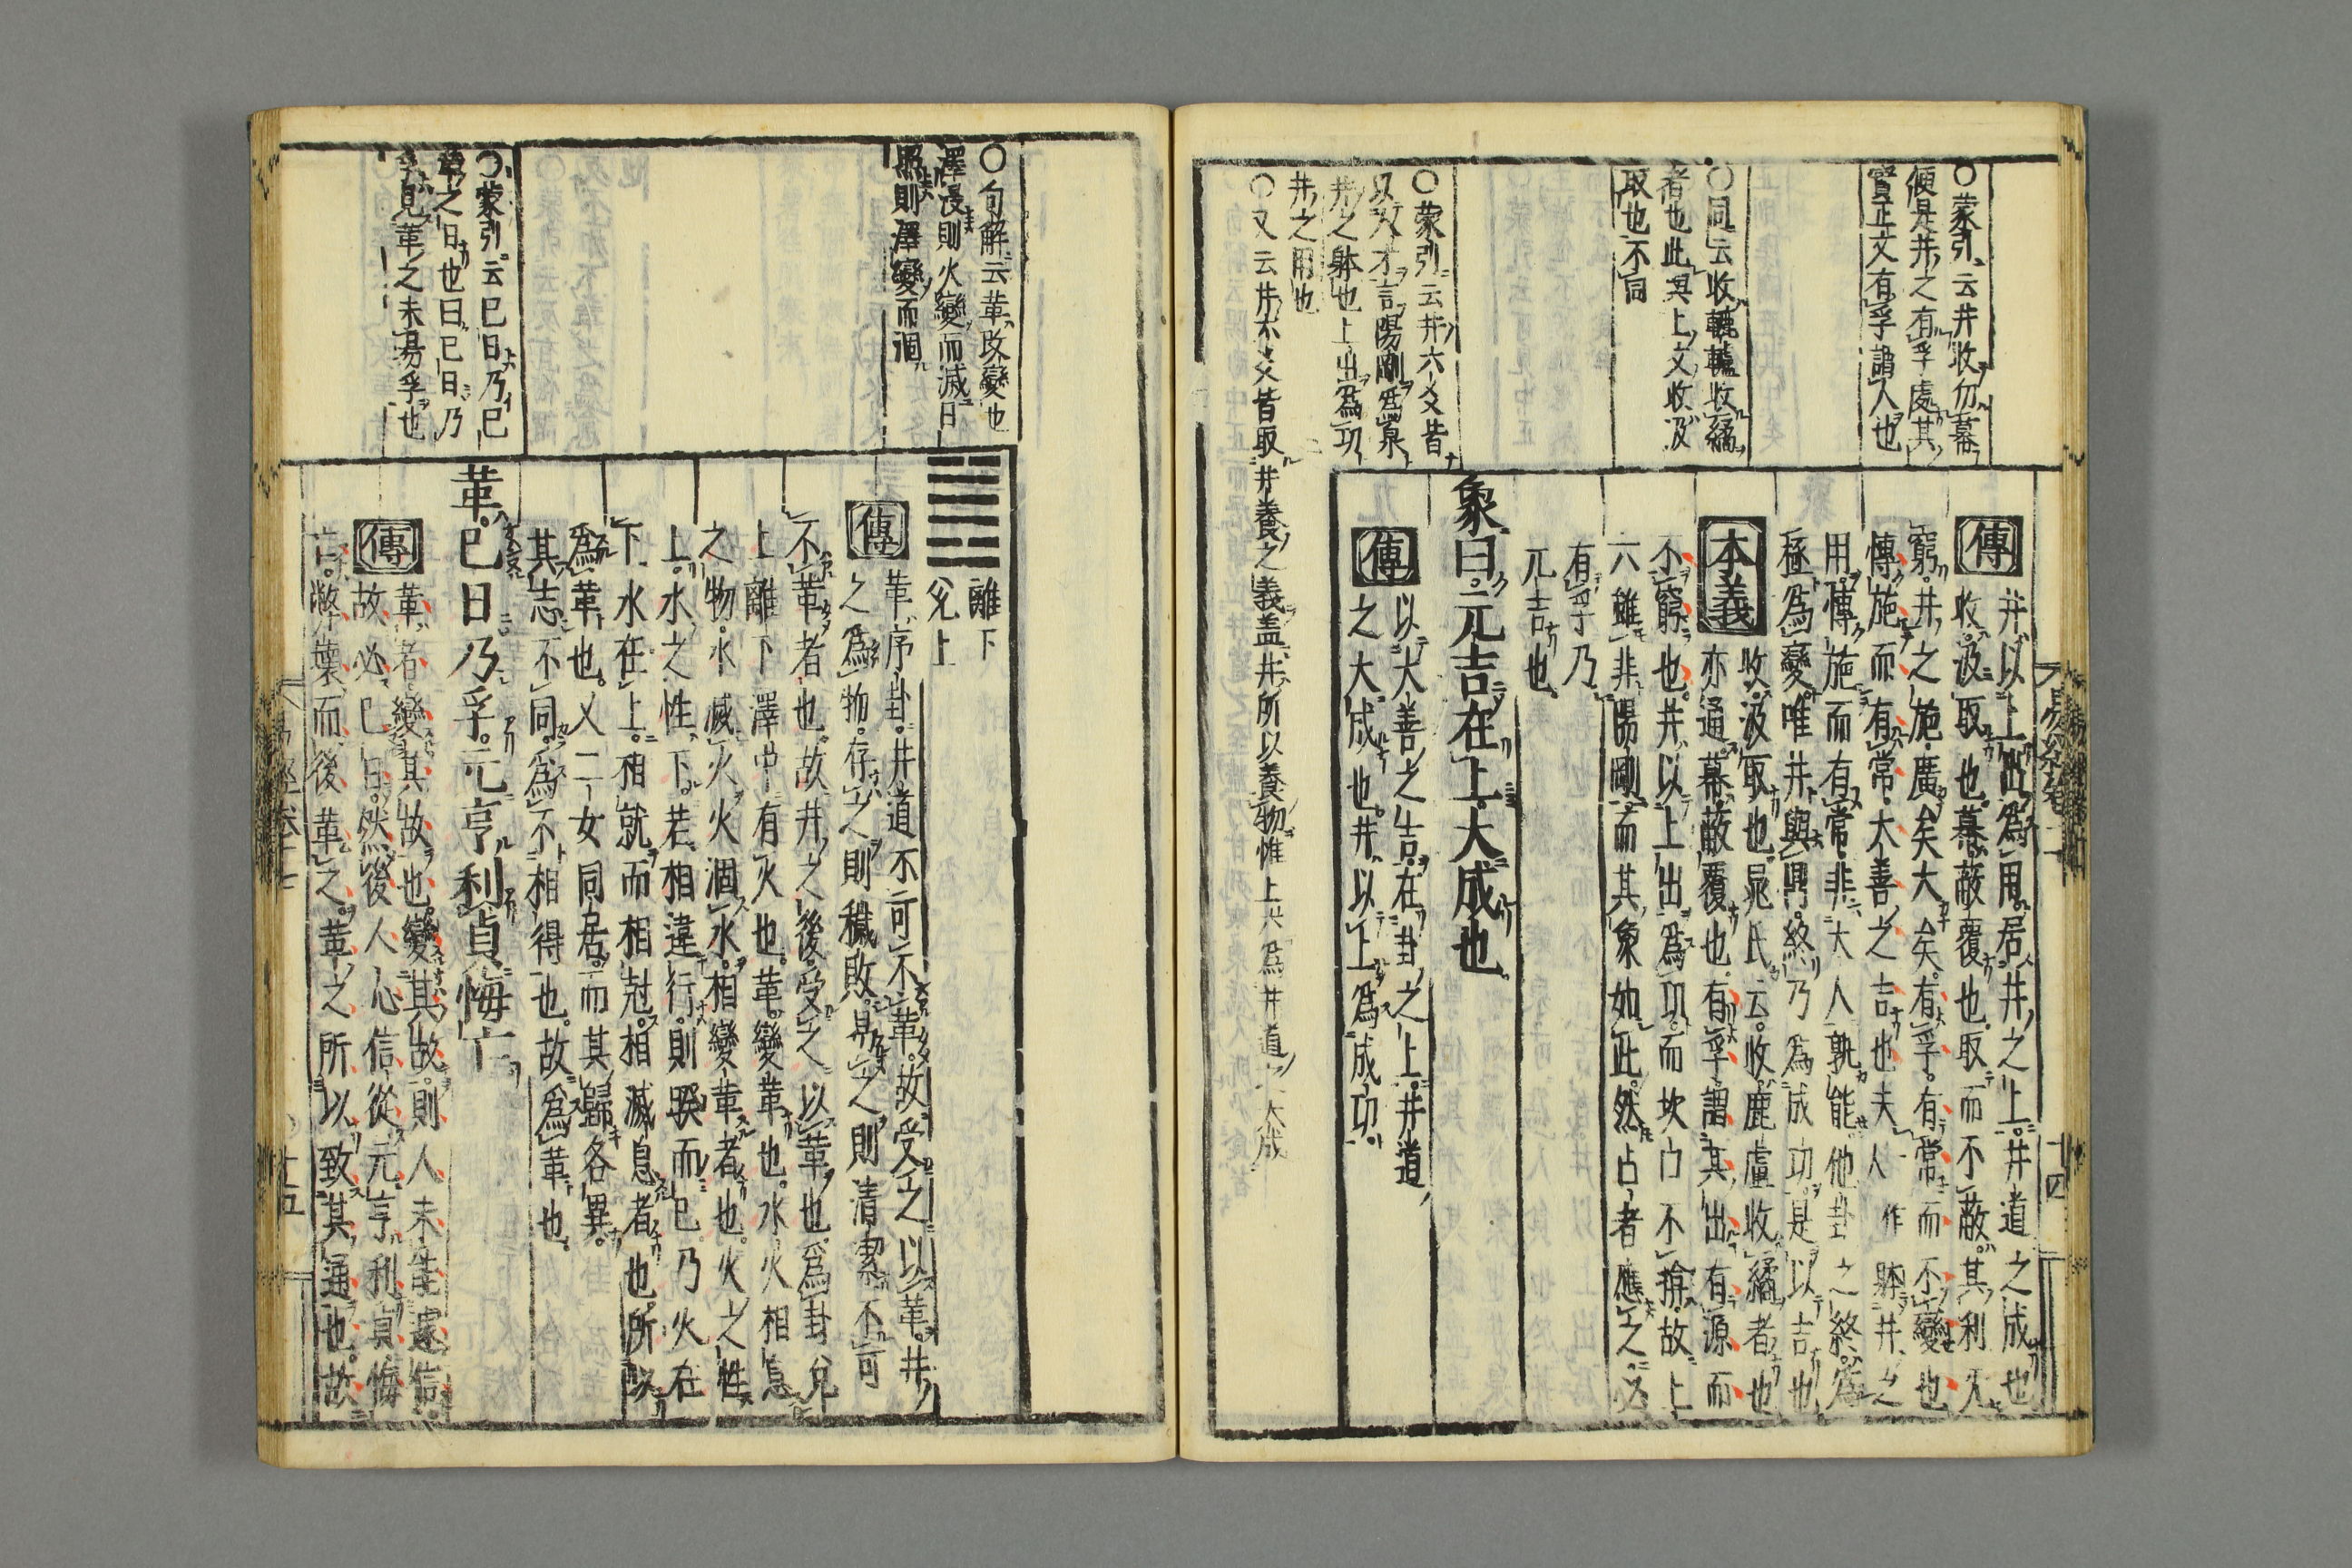 ○蒙引云井收勿幕
便是井之有孚處其
實正文有孚謂人也
○同云收轆轤收繘
者也此與上文收汲
取也不同
○蒙引云井六爻皆
以文才言陽剛為泉
井之躰也上出為功
井之用也
○又云井六爻皆取井養之義盖井所以養物惟上爻為井道大成
傳
井以上出為用居井之上井道之成也
收汲取也幕蔽覆也取而不蔽其利无
窮井之施廣矣大矣有孚有常而不變也
博施而有常大善之吉也夫躰井之
用博施而有常非大人孰能他卦之終為
極為變唯井與鼎終乃為成功是以吉也
本義
收汲取也晁氏云收鹿盧收繘者也
亦通幕蔽覆也有孚謂其出有源而
不窮也井以上出為功而坎口不揜故上
六雖非陽剛而其象如此然占者應之必
有孚乃
元吉也
象曰元吉在上大成也
傳
以大善之吉在卦之上井道
之大成也井以上為成功
十四
○句解云革改變也
澤浸則火變而滅日
照則澤變而涸
○蒙引云巳日乃巳
革之日也曰巳日乃
孚見革之未易孚也
離下
兌上
傳
革序卦井道不可不革故受之以革井
之為物存之則穢敗易之則清潔不可
不革者也故井之後受之以革也為卦兌
上離下澤中有火也革變革也水火相息
之物水滅火火涸水相變革者也火之性
上水之性下若相違行則睽而已乃火在
下水在上相就而相剋相滅息者也所以
為革也又二女同居而其歸各異
其志不同為不相得也故為革也
革巳日乃孚元亨利貞悔亡
傳
革者變其故也變其故則人未能遽信
故必巳日然後人心信從元亨利貞悔
亡弊壞而後革之革之所以致其通也故
十五